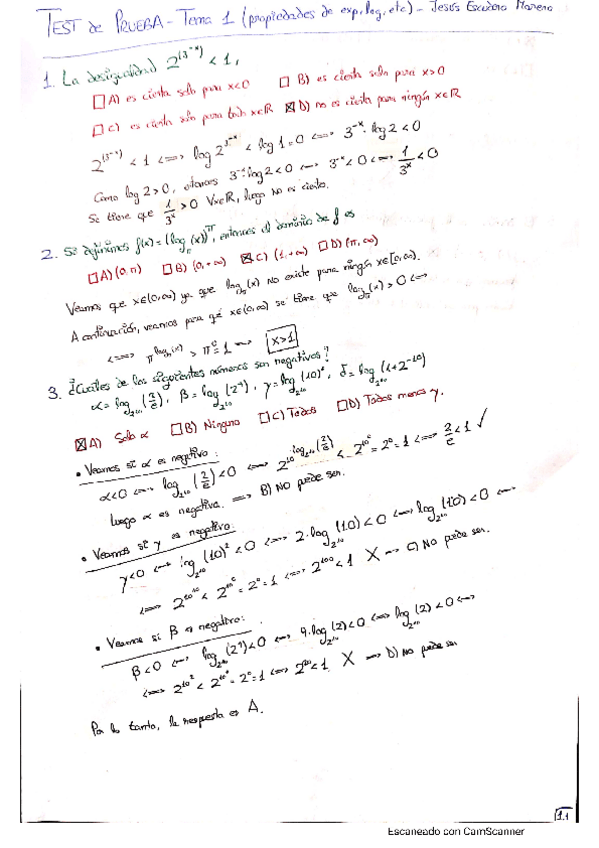 TEST de PRUEBA - Tema 1 (propiedades de exp, log, etc) - Jesús Escudero Moreno
1. La desigualdad 2^(3^-x) < 1,
□ A) es cierta solo para x<0 □ B) es cierta solo para x>0
□ C) es cierta para todo x∈R ☒ D) no es cierta para ningún x∈R
2^(3^-x) < 1 <=> log 2^(3^-x) < log 1 = 0 <=> 3^-x · log 2 < 0
Como log 2 > 0, entonces 3^-x log 2 < 0 <=> 3^-x < 0 <=> 1/3^x < 0
Se tiene que 1/3^x > 0 ∀x∈R, luego no es cierto.
2. Si definimos f(x) = (log_π(x))^π, entonces el dominio de f es
□ A) (0, π) □ B) (0, +∞) ☒ C) (1, +∞) □ D) (π, ∞)
Veamos que x∈(0,∞) ya que log (x) no existe para ningún
A continuación, veamos para qué x∈(0,∞) se tiene que log (x) > 0 <=>
<=> π^(log_π(x)) > π^0 = 1 => x>1
3. ¿Cuáles de los siguientes números son negativos?
α = log_2^10 (2/e), β = log_2^10 (2^9), γ = log_2^10 (10)^2, δ = log_2^10 (1+2^-10)
☒ A) Solo α □ B) Ninguno □ C) Todos □ D) Todos menos γ.
• Veamos si α es negativo:
α<0 <=> log_2^10 (2/e) < 0 <=> 2^10^(log_2^10 (2/e)) < 2^10^0 = 2^0 = 1 <=> 2/e < 1 ✓
Luego α es negativa. => B) NO puede ser.
• Veamos si γ es negativo:
γ<0 <=> log_2^10 (10)^2 < 0 <=> 2·log_2^10 (10) < 0 <=> log_2^10 (10) < 0 <=>
<=> 2^10^10 < 2^10^0 = 2^0 = 1 <=> 2^100 < 1 X => C) No puede ser.
• Veamos si β es negativo:
β<0 <=> log_2^10 (2^9) < 0 <=> 9·log_2^10 (2) < 0 <=> log_2^10 (2) < 0 <=>
<=> 2^10^2 < 2^10^0 = 2^0 = 1 <=> 2^20 < 1 X => D) No puede ser
Por lo tanto, la respuesta es A.
1.1
Escaneado con CamScanner